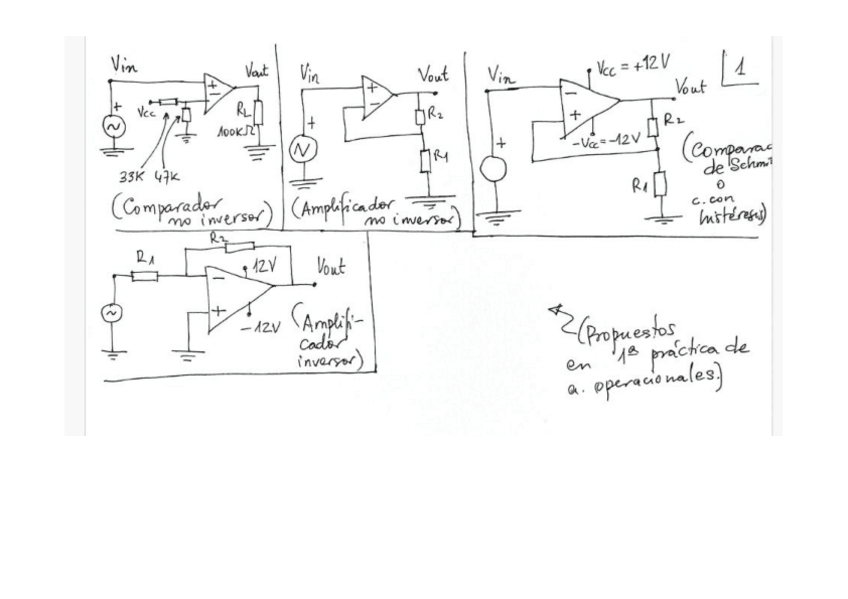 Vin
Vout
+
−
+
Vcc
RL
100KΩ
33K 47K
(Comparador
no inversor)
Vin
Vout
+
−
+
R2
R1
(Amplificador
no inversor)
Vin
Vcc = +12V
1
Vout
−
+
+
−Vcc=−12V
R2
R1
(Comparac
de Schmit
o
c. con
histéresis)
R2
R1
12V
Vout
−
+
−12V
(Amplifi-
cador
inversor)
(Propuestos
en 1ª práctica de
a. operacionales.)